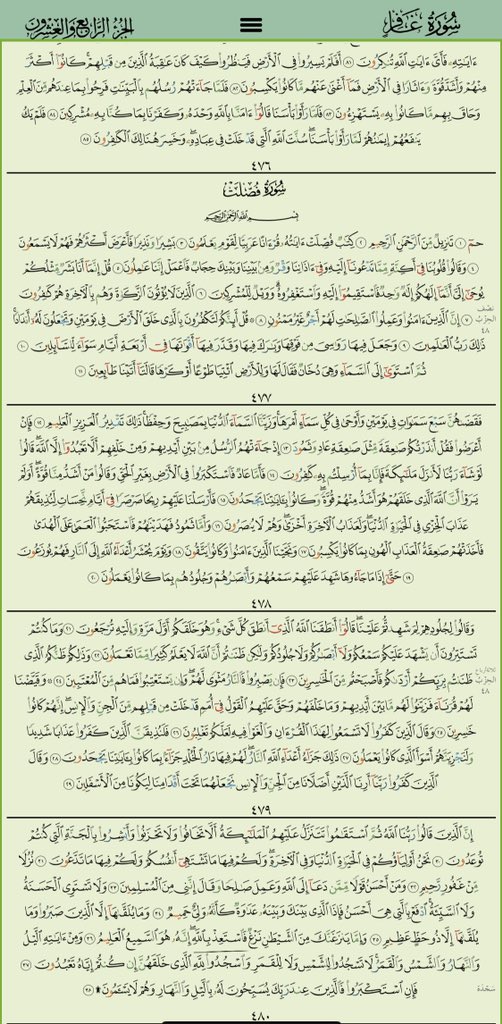 سورة غافر
الجزء الرابع والعشرون
ءايته فأى ءايت الله تنكرون ٨١ أفلم يسيروا فى الأرض فينظروا كيف كان عقبة الذين من قبلهم كانوا أكثر
منهم وأشد قوة وءاثارا فى الأرض فما أغنى عنهم ما كانوا يكسبون ٨٢ فلما جاءتهم رسلهم بالبينت فرحوا بما عندهم من العلم
وحاق بهم ما كانوا به يستهزءون ٨٣ فلما رأوا بأسنا قالوا ءامنا بالله وحده وكفرنا بما كنا به مشركين ٨٤ فلم يك
ينفعهم إيمنهم لما رأوا بأسنا سنت الله التى قد خلت فى عباده وخسر هنالك الكفرون ٨٥
٤٧٦
سورة فصلت
بسم الله الرحمن الرحيم
حم ١ تنزيل من الرحمن الرحيم ٢ كتب فصلت ءايته قرءانا عربيا لقوم يعلمون ٣ بشيرا ونذيرا فأعرض أكثرهم فهم لا يسمعون
٤ وقالوا قلوبنا فى أكنة مما تدعونا إليه وفى ءاذاننا وقر ومن بيننا وبينك حجاب فاعمل إننا عملون ٥ قل إنما أنا بشر مثلكم
يوحى إلى أنما إلهكم إله وحد فاستقيموا إليه واستغفروه وويل للمشركين ٦ الذين لا يؤتون الزكوة وهم بالءاخرة هم كفرون
٧ إن الذين ءامنوا وعملوا الصلحت لهم أجر غير ممنون ٨ قل أئنكم لتكفرون بالذى خلق الأرض فى يومين وتجعلون له أندادا
نصف الحزب ٤٨
ذلك رب العلمين ٩ وجعل فيها روسى من فوقها وبرك فيها وقدر فيها أقوتها فى أربعة أيام سواء للسائلين ١٠
ثم استوى إلى السماء وهى دخان فقال لها وللأرض ائتيا طوعا أو كرها قالتا أتينا طائعين ١١
٤٧٧
فقضىهن سبع سموات فى يومين وأوحى فى كل سماء أمرها وزينا السماء الدنيا بمصبيح وحفظا ذلك تقدير العزيز العليم ١٢ فإن
أعرضوا فقل أنذرتكم صعقة مثل صعقة عاد وثمود ١٣ إذ جاءتهم الرسل من بين أيديهم ومن خلفهم ألا تعبدوا إلا الله قالوا
لو شاء ربنا لأنزل ملئكة فإنا بما أرسلتم به كفرون ١٤ فأما عاد فاستكبروا فى الأرض بغير الحق وقالوا من أشد منا قوة أولم
يروا أن الله الذى خلقهم هو أشد منهم قوة وكانوا بءايتنا يجحدون ١٥ فأرسلنا عليهم ريحا صرصرا فى أيام نحسات لنذيقهم
عذاب الخزى فى الحيوة الدنيا ولعذاب الءاخرة أخزى وهم لا ينصرون ١٦ وأما ثمود فهدينهم فاستحبوا العمى على الهدى
فأخذتهم صعقة العذاب الهون بما كانوا يكسبون ١٧ ونجينا الذين ءامنوا وكانوا يتقون ١٨ ويوم يحشر أعداء الله إلى النار فهم يوزعون
١٩ حتى إذا ما جاءوها شهد عليهم سمعهم وأبصرهم وجلودهم بما كانوا يعملون ٢٠
٤٧٨
وقالوا لجلودهم لم شهدتم علينا قالوا أنطقنا الله الذى أنطق كل شىء وهو خلقكم أول مرة وإليه ترجعون ٢١ وما كنتم
تستترون أن يشهد عليكم سمعكم ولا أبصركم ولا جلودكم ولكن ظننتم أن الله لا يعلم كثيرا مما تعملون ٢٢ وذلكم ظنكم الذى
ظننتم بربكم أردىكم فأصبحتم من الخسرين ٢٣ فإن يصبروا فالنار مثوى لهم وإن يستعتبوا فما هم من المعتبين ٢٤ وقيضنا
ثلاثة أرباع الحزب ٤٨
لهم قرناء فزينوا لهم ما بين أيديهم وما خلفهم وحق عليهم القول فى أمم قد خلت من قبلهم من الجن والإنس إنهم كانوا
خسرين ٢٥ وقال الذين كفروا لا تسمعوا لهذا القرءان والغوا فيه لعلكم تغلبون ٢٦ فلنذيقن الذين كفروا عذابا شديدا
ولنجزينهم أسوأ الذى كانوا يعملون ٢٧ ذلك جزاء أعداء الله النار لهم فيها دار الخلد جزاء بما كانوا بءايتنا يجحدون ٢٨ وقال
الذين كفروا ربنا أرنا الذين أضلانا من الجن والإنس نجعلهما تحت أقدامنا ليكونا من الأسفلين ٢٩
٤٧٩
إن الذين قالوا ربنا الله ثم استقموا تتنزل عليهم الملئكة ألا تخافوا ولا تحزنوا وأبشروا بالجنة التى كنتم
توعدون ٣٠ نحن أولياؤكم فى الحيوة الدنيا وفى الءاخرة ولكم فيها ما تشتهى أنفسكم ولكم فيها ما تدعون ٣١ نزلا
من غفور رحيم ٣٢ ومن أحسن قولا ممن دعا إلى الله وعمل صلحا وقال إننى من المسلمين ٣٣ ولا تستوى الحسنة
ولا السيئة ادفع بالتى هى أحسن فإذا الذى بينك وبينه عدوة كأنه ولى حميم ٣٤ وما يلقىها إلا الذين صبروا وما
يلقىها إلا ذو حظ عظيم ٣٥ وإما ينزغنك من الشيطن نزغ فاستعذ بالله إنه هو السميع العليم ٣٦ ومن ءايته اليل
والنهار والشمس والقمر لا تسجدوا للشمس ولا للقمر واسجدوا لله الذى خلقهن إن كنتم إياه تعبدون ٣٧
فإن استكبروا فالذين عند ربك يسبحون له باليل والنهار وهم لا يسءمون ۩ ٣٨
سجدة
٤٨٠